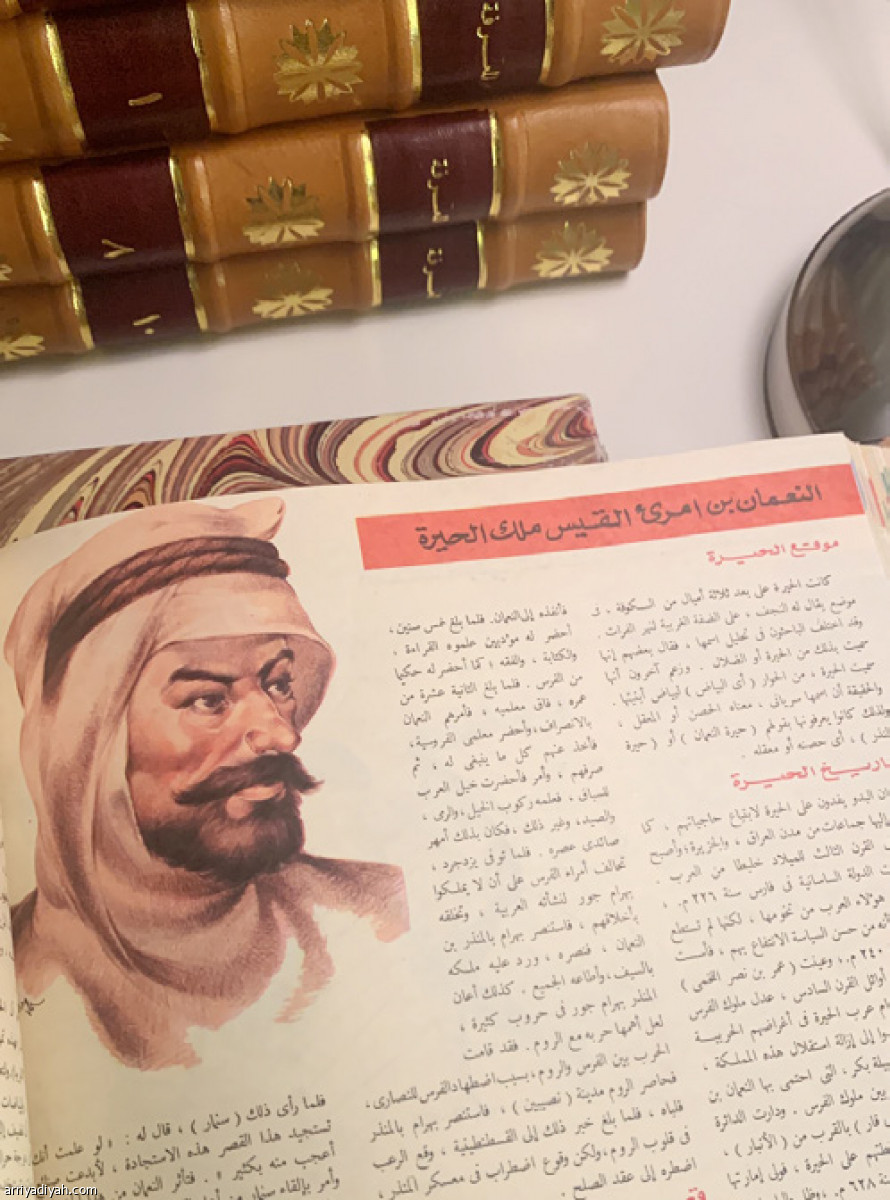 ١
المعرفة
٨
المعرفة
١٠
المعرفة
النعمان بن امرئ القيس ملك الحيرة
موقع الحيرة
كانت الحيرة على بعد ثلاثة أميال من الكوفة ، فى
موضع يقال له النجف ، على الضفة الغربية لنهر الفرات .
وقد اختلف الباحثون فى تحليل اسمها ، فقال بعضهم إنها
سميت بذلك من الحيرة أو الضلال . وزعم آخرون أنها
سميت الحيرة ، من الحوار ( أى البياض ) لبياض أبنيتها .
والحقيقة أن اسمها سريانى ، معناه الحصن أو المعقل ،
ولذلك كانوا يعرفونها بقولهم ( حيرة النعمان ) أو ( حيرة
المنذر ) ، أى حصنه أو معقله .
تاريخ الحيرة
كان البدو يفدون على الحيرة لابتياع حاجياتهم ، كما
جماعات من مدن العراق ، والجزيرة ؛ وأصبح
القرن الثالث للميلاد خليطا من العرب .
الدولة الساسانية فى فارس سنة ٢٢٦ م . ،
هؤلاء العرب من تخومها ، لكنها لم تستطع
من حسن السياسة الانتفاع بهم ، فأست
٢٤٠ م . ، وعينت ( عمر بن نصر اللخمى )
أوائل القرن السادس ، عدل ملوك الفرس
عرب الحيرة فى أغراضهم الحربية
إلى إزالة استقلال هذه المملكة ،
بكر ، التى احتمى بها النعمان بن
بين ملوك الفرس . ودارت الدائرة
قار ) بالقرب من ( الأنبار ) ،
على الحيرة ، فولى إمارتها
٦٢٨ م .
فأنفذه إلى النعمان . فلما بلغ خمس سنين ،
أحضر له مؤدبين علموه القراءة ،
والكتابة ، والفقه ؛ كما أحضر له حكيما
من الفرس . فلما بلغ الثانية عشرة من
عمره ، فاق معلميه ، فأمرهم النعمان
بالانصراف ، وأحضر معلمى الفروسية ،
فأخذ عنهم كل ما ينبغى له ، ثم
صرفهم ، وأمر فأحضرت خيل العرب
للسباق ، فعلمه ركوب الخيل ، والرمى ،
والصيد ، وغير ذلك ، فكان بذلك أمهر
صائدى عصره . فلما توفى يزدجرد ،
تحالف أمراء الفرس على أن لا يملكوا
بهرام جور لنشأته العربية ، وتخلقه
بأخلاقهم ، فاستنصر بهرام بالمنذر بن
النعمان ، فنصره ، ورد عليه ملكه
بالسيف ، وأطاعه الجميع . كذلك أعان
المنذر بهرام جور فى حروب كثيرة ،
لعل أهمها حربه مع الروم . فقد قامت
الحرب بين الفرس والروم ، بسبب اضطهاد الفرس للنصارى ،
فحاصر الروم مدينة ( نصيبين ) ، فاستنصر بهرام بالمنذر
فلباه ، فلما بلغ خبر ذلك إلى القسطنطينية ، وقع الرعب
فى قلوب الروم ، ولكن وقوع اضطراب فى معسكر المنذر ،
اضطره إلى عقد الصلح .
فلما رأى ذلك ( سنمار ) ، قال له : « لو علمت أنك
تستجيد هذا القصر هذه الاستجادة ، لأبدعت
أعجب منه بكثير » . فتأثر النعمان من
وأمر بإلقاء سنمار من
arriyadiyah.com